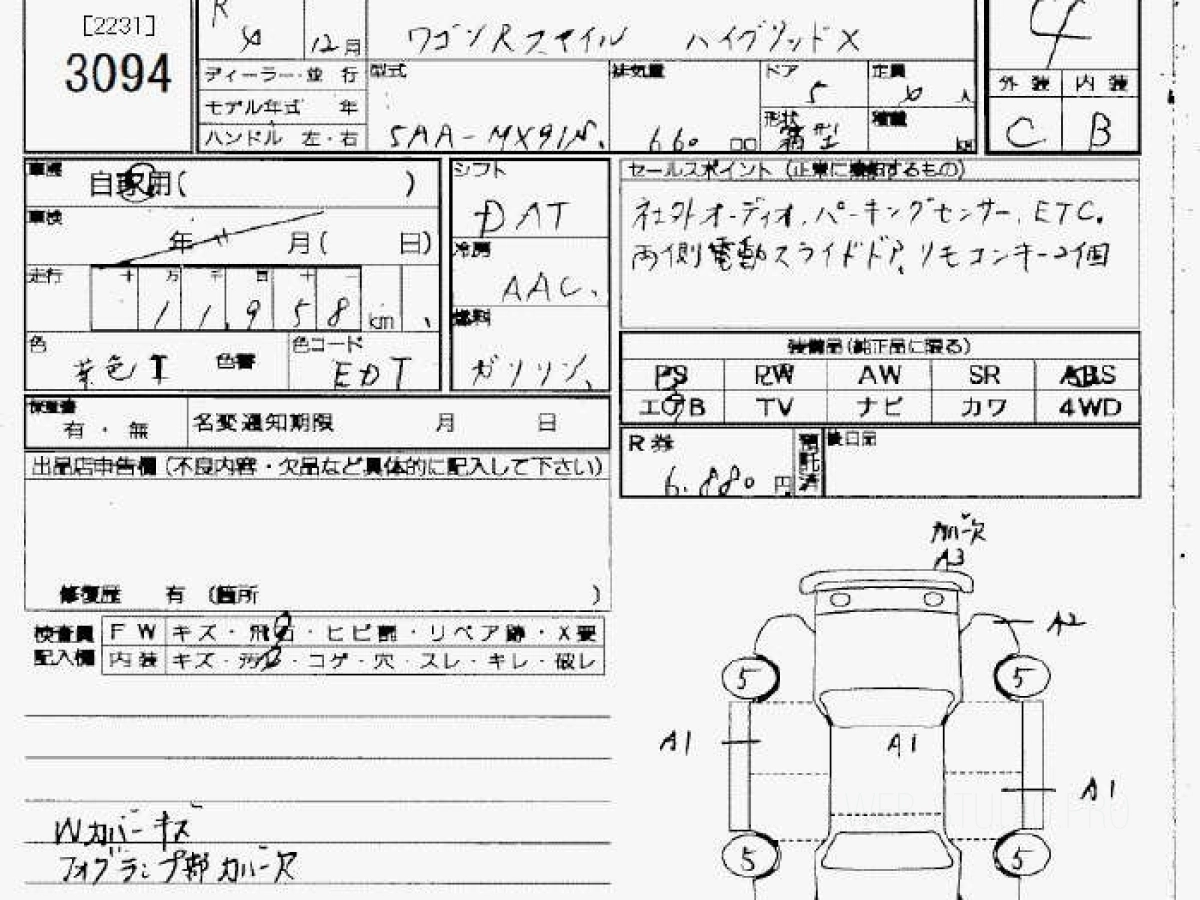 [2231]
3094
R
4
12月
ワゴンRスマイル ハイブリッドX
4
ディーラー・並 行
モデル年式 年
ハンドル 左・右
型式
5AA-MX91S.
排気量
660 cc
ドア
5
定員
4 人
形状
箱型
積載
kg
外装 内装
C B
車歴
自家用( )
車検
年 月( 日)
走行
十 万 千 百 十 一
1 1,9 5 8 km
色
茶色T
色替
色コード
EDT
シフト
DAT
冷房
AAC.
燃料
ガソリン
セールスポイント(正常に機能するもの)
社外オーディオ.パーキングセンサー.ETC.
両側電動スライドドア.リモコンキー2個
装備品(純正品に限る)
PS PW AW SR ABS
エアB TV ナビ カワ 4WD
有・無
名変通知期限 月 日
R券
6.880円
預託済
後日品
出品店申告欄(不良内容・欠品など具体的に記入して下さい)
修復歴 有 (箇所 )
検査員記入欄
FW キズ・飛石・ヒビ割・リペア跡・X要
内装 キズ・汚れ・コゲ・穴・スレ・キレ・破レ
カバー欠
A3
A2
5 5
A1 A1
A1
5 5
Wカバーキズ
フォグランプ部カバー欠